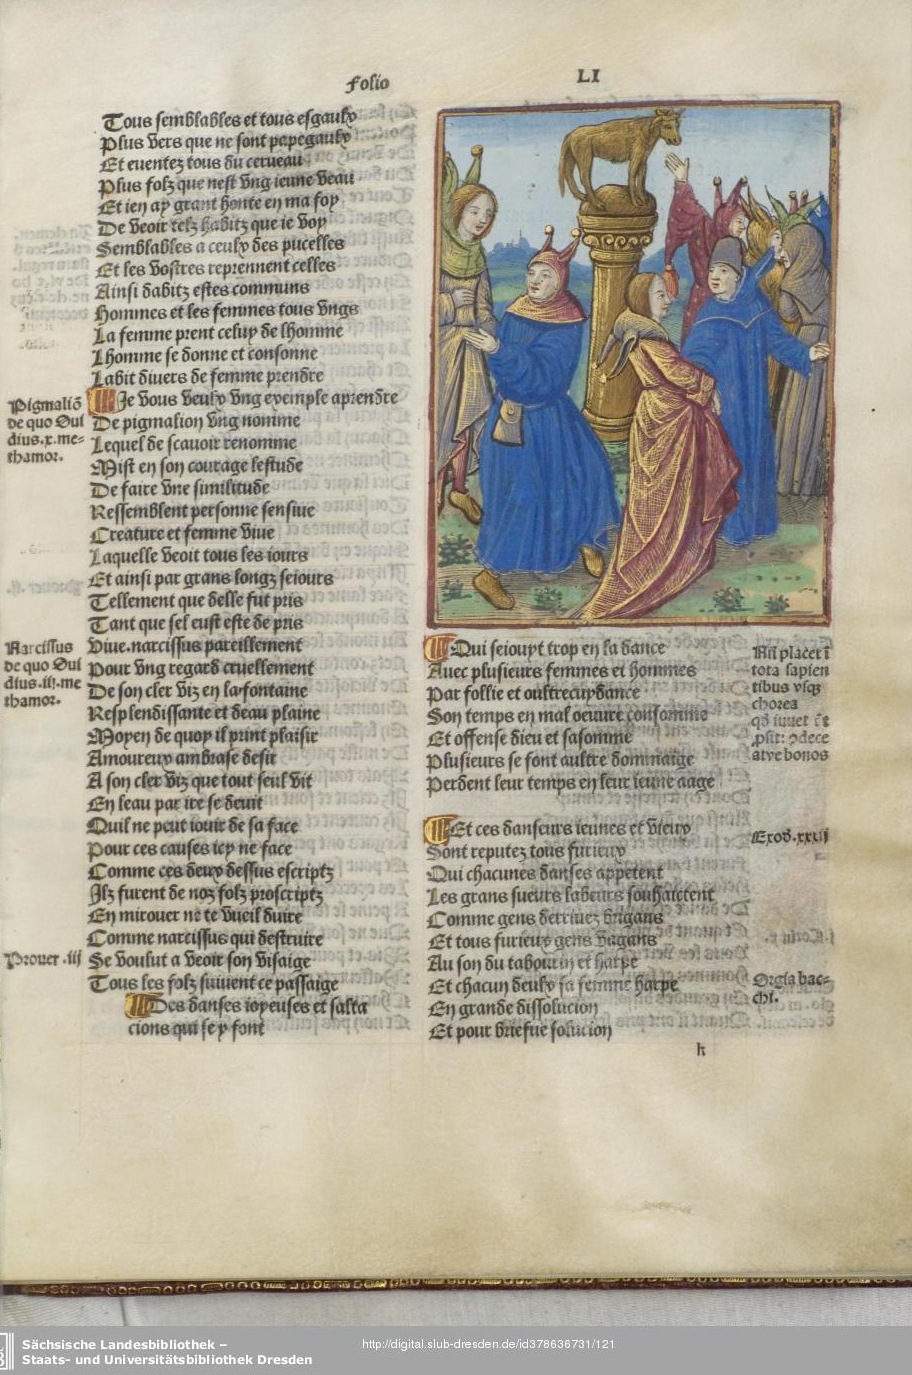 Folio
LI
Tous semblables et tous esgaulx
Plus vers que ne sont papegaulx
Et euentez tous du cerueau
Plus folz que nest vng ieune veau
Et ien ay grant honte en ma foy
De veoir telz habitz que ie voy
Semblables a ceulx des pucelles
Et les vostres reprennent celles
Ainsi dabitz estes communs
Hommes et les femmes tous vngs
La femme prent celuy de lhomme
Lhomme se donne et consonne
Labit diuers de femme prendre
Je vous veulx vng exemple aprendre
De pigmalion vng nomme
Lequel de scauoir renomme
Mist en son courage lestude
De faire vne similitude
Ressemblent personne sensiue
Creature et femme viue
Laquelle veoit tous les iours
Et ainsi par grans longz seiours
Tellement que delle fut pris
Tant que sel eust este de pris
Viue. narcissus pareillement
Pour vng regard cruellement
De son cler viz en la fontaine
Resplendissante et deau plaine
Moyen de quoy il print plaisir
Amoureux ambrase desir
A son cler viz que tout seul vit
En leau par ire se deuit
Quil ne peut iouir de sa face
Pour ces causes icy ne face
Comme ces deux dessus escriptz
Ilz furent de noz folz proscriptz
En mirouer ne te vueil duire
Comme narcissus qui destruire
Se voulut a veoir son visaige
Tous les folz suiuent ce passaige
Des danses ioyeuses et salta
cions qui se y font
Pigmaliō
de quo Oui
dius.x.me-
thamor.
Narcissus
de quo Oui
dius.iij.me
thamor.
Prouer .iij
Qui seiouyt trop en la dance
Auec plusieurs femmes et hommes
Par follie et oultrecuydance
Son temps en mal oeuure consomme
Et offense dieu et sasomme
Plusieurs se font aultre dommaige
Perdent leur temps en leur ieune aage
Et ces danseurs ieunes et vieux
Sont reputez tous furieux
Qui chacunes danses appetent
Les grans sueurs labeurs souhaictent
Comme gens desriuez brigans
Et tous furieux gens vagans
Au son du tabourin et harpe
Et chacun deulx sa femme harpe
En grande dissolucion
Et pour briefue solucion
Nil placet ī
tota sapien
tibus vsq̄
chorea
bonos
Exod.xxxij
Orgia bac-
chi.
h
Sächsische Landesbibliothek –
Staats- und Universitätsbibliothek Dresden
http://digital.slub-dresden.de/id378636731/121